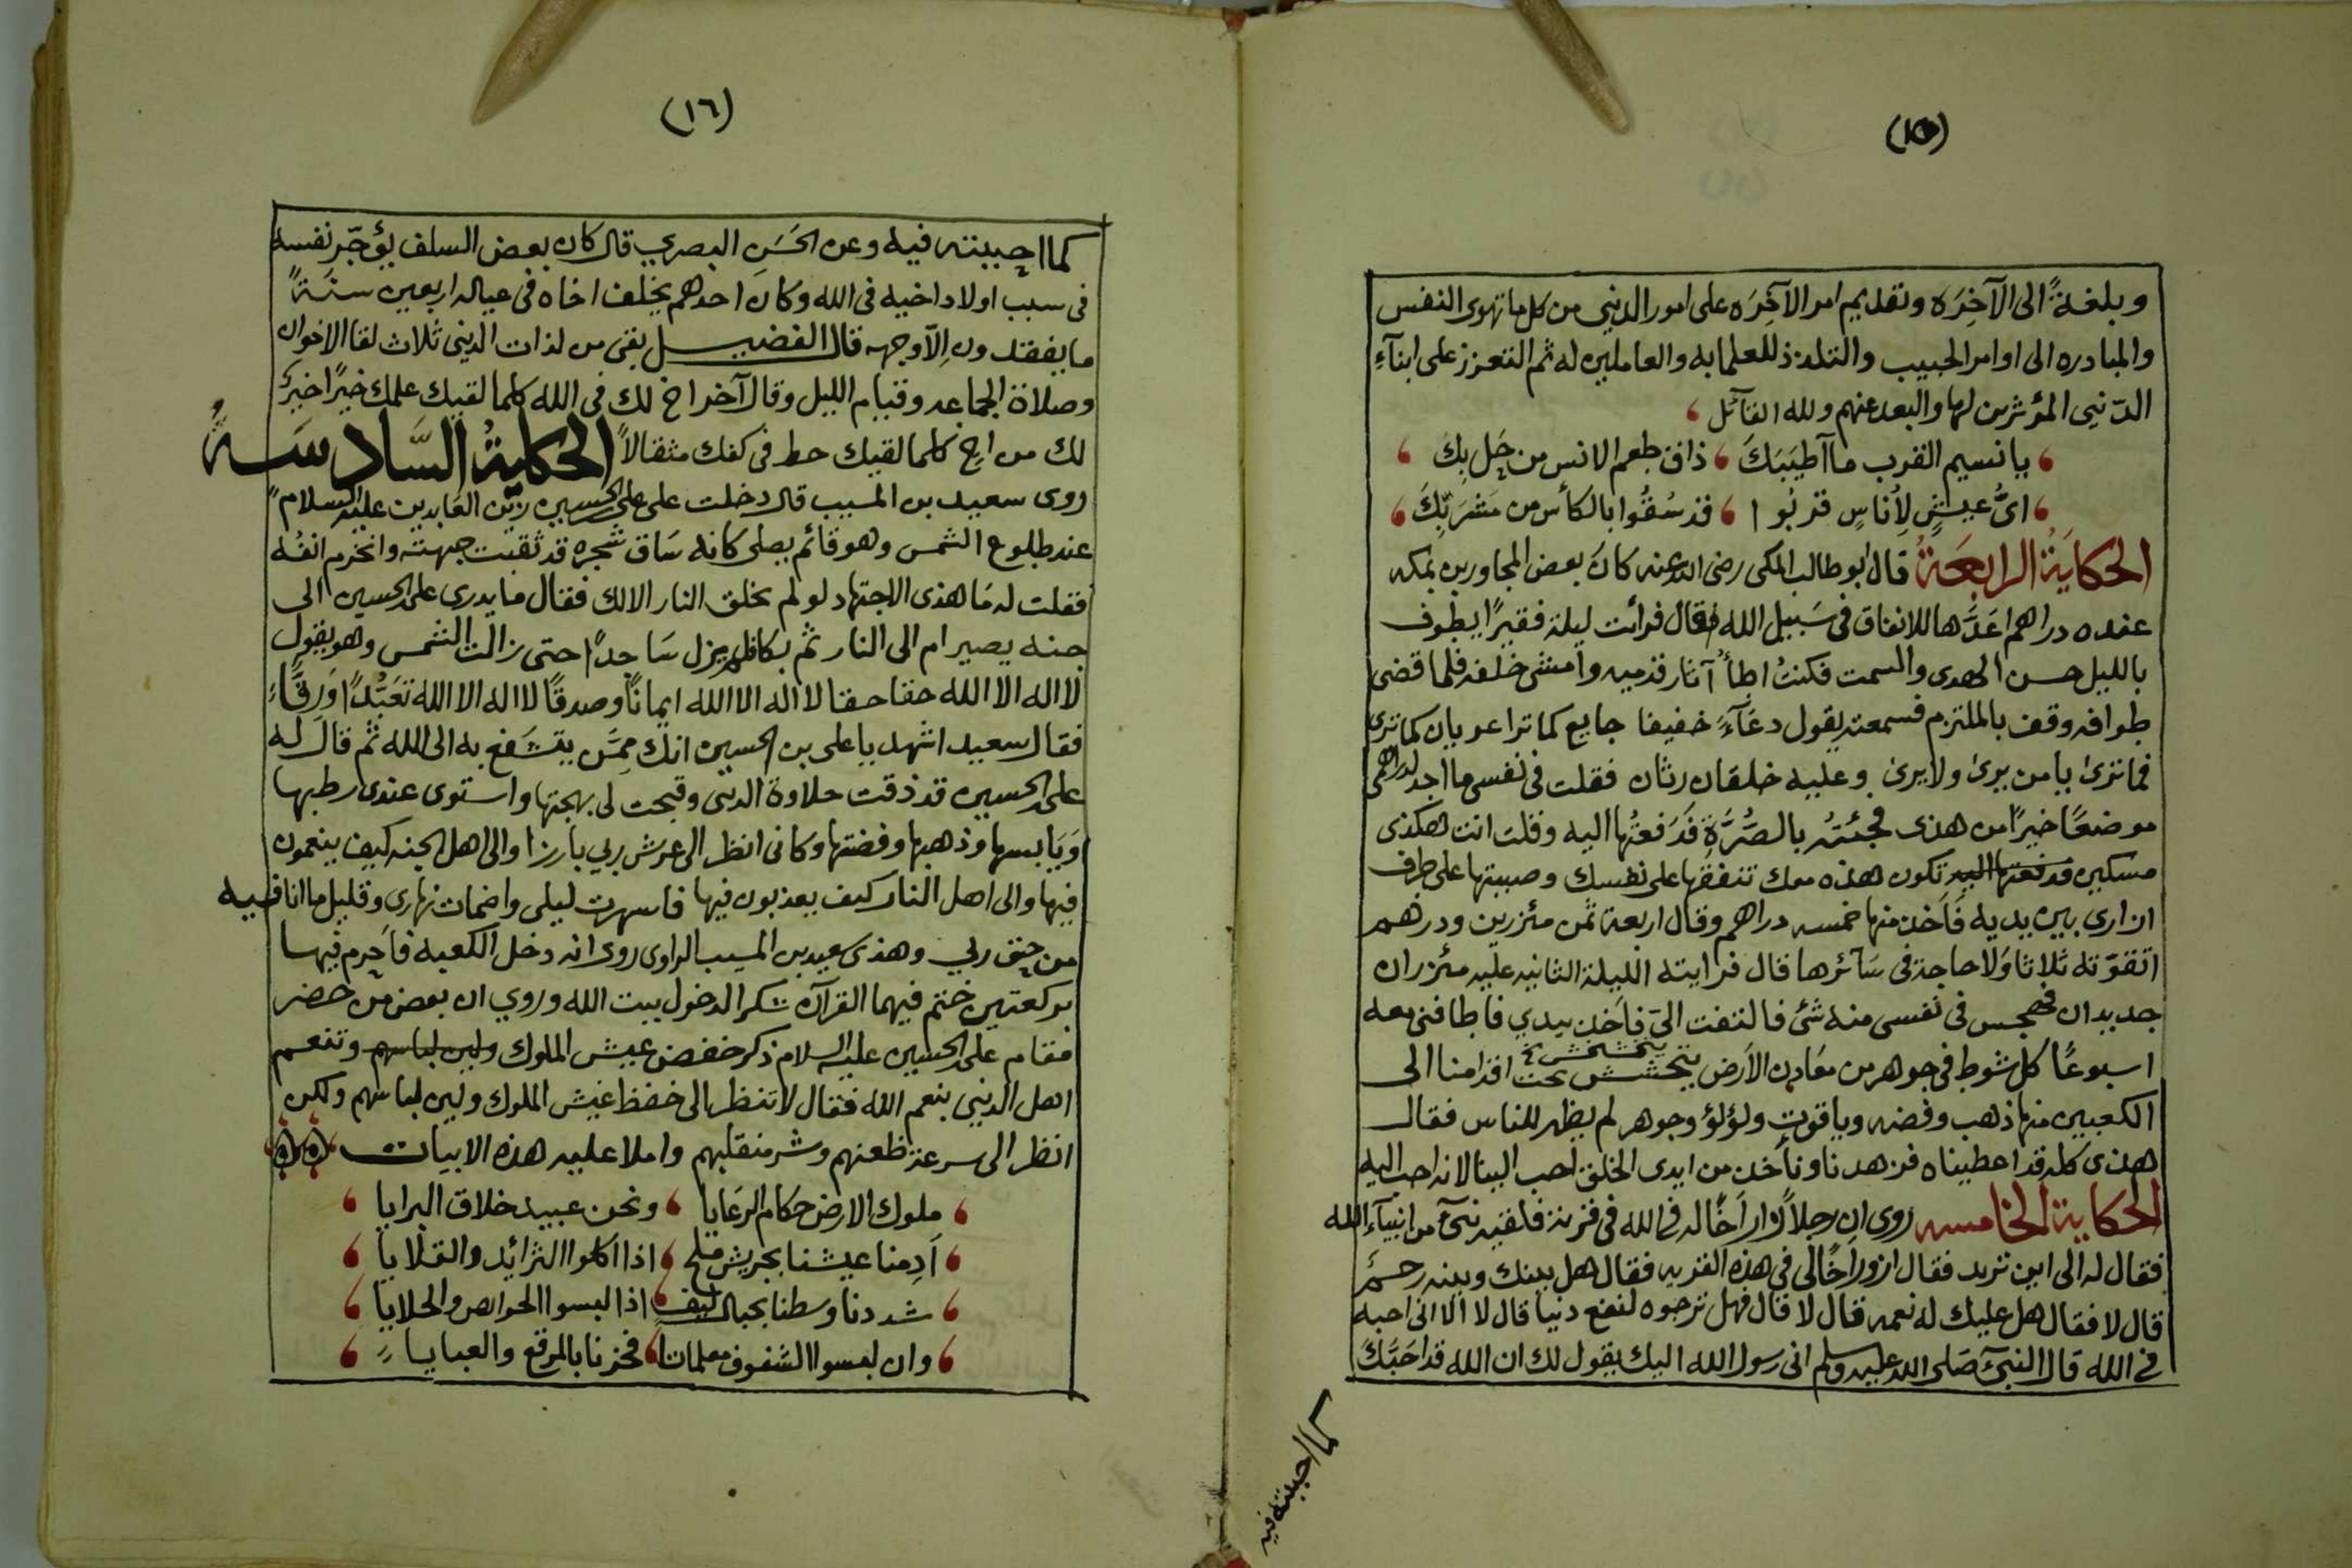 (١٥)
وبلغةً الى الآخِرَه وتقديم امر الآخِرَه على امور الدنيى من كل ما تهوى النفس
والمبادره الى اوامر الحبيب والتلذذ للعلما به والعاملين له ثم التعزز على ابنآءِ
الدّنيى المؤثرين لها والبعد عنهم ولله القآئل
يا نسيم القرب ما آطيَبَكَ ذاق طعم الانس من حَل بِكَ
ايُّ عيشٍ لِأُناسٍ قربُوا قد سُقُوا بالكأس من مَشرَبِكَ
الحكايَةُ الرابعَةُ قال ابو طالب المكى رضى الله عنه كانَ بعض المجاورين بمكه
عنده دراهم اعَدَّها للانفاق فى سَبيل الله فقال فرائت ليلة فقيرًا يطوف
بالليل حسن الهدى والسمت فكنتُ اطأُ آثار قدميه وامشى خلفه فلما قضى
طوافه وقف بالملتزم فسمعته يقول دعَآءً خفيفا جايع كما ترا عريان كما ترى
فما ترى يا من يرى ولا يرى وعليه خلقان رثان فقلت فى نفسى ما اجد لدراهمى
موضعًا خيرًا من هذى فجئتُه بالصُّرَّةِ فَدَفعتُها اليه وقلت انت هكذى
مسكين فدفعتها اليه تكون هذه معك تنفقها على نفسك وصببتها على طرف
ازارى بين يديه فَاَخذ منها خمسه دراهم وقال اربعة ثمن مئزرين ودرهم
اتقوّته ثلاثا وَلا حاجة فى سَآئرها قال فرايته الليلة الثانيه عليه مئزران
جديدان فهجس فى نفسى منه شئ فالتفت الىّ فاَخذ بيدي فاطافنى معه
اسبوعًا كل شوط فى جوهر من معَادِن الاَرض يتخشخش تحت اقدامنا الى
الكعبين منها ذهب وفضه وياقوت ولؤلؤ وجوهر لم يظهر للناس فقال
هذى كله قد اعطيناه فزهدنا ونأخذ من ايدى الخلق احب الينا لانه احب اليه
الحكاية الخامسه روى ان رجلاً زار اَخًا له فى الله فى قرية فلقيه نبىٌ من انبيَآء الله
فقال له الى اين تريد فقال ازور اَخًا لى فى هذه القريه فقال هل بينك وبينه رحم
قال لا فقال هل عليك له نعمه قال لا قال فهل ترجوه لنفع دنيا قال لا الا انى احبه
فى الله قال النبىّ صَلى الله عليه وسلم انى رسول الله اليك يقول لك ان الله قد احَبَّكَ
كما احببته فيه
(١٦)
كما احببته فيه وعن الحَسَن البصري قال كان بعض السلف يؤجّر نفسه
فى سبب اولاد اخيه فى الله وكان احدهم يخلف اخاه فى عياله اربعين سنَةً
ما يفقدون اِلاّ وجهه قال الفضيل بقى من لذات الدنيى ثلاث لقا الاخوان
وصلاة الجماعه وقيام الليل وقال آخر اخ لك فى الله كلما لقيك علمك خيرًا خيرٌ
لك من اخٍ كلما لقيك حط فى كفك مثقالاً الحكايةُ السَّادسَةُ
روى سعيد بن المسيب قال دخلت على على الحسين زين العَابدين عليه السلام
عند طلوع الشمس وهو قائم يصلى كانه سَاق شجره قد ثقبت جبهته وانخرم انفُه
فقلت له مَا هذى الاجتهاد لو لم تخلق النار الا لك فقال ما يدرى على الحسين الى
جنه يصير ام الى النار ثم بكا فلم يزل سَاجدًا حتى زالت الشمس وهو يقول
لا اله الا الله حقا حقا لا اله الا الله ايمانًا وصدقًا لا اله الا الله تعَبُّدًا وَرِقًّا
فقال سعيد اشهد يا على بن الحسين انك ممَّن يتشَفع به الى الله ثم قال له
على الحسين قد ذقت حلاوة الدنيى وقبحت لى بهجتها واستوى عندى رطبها
وَيَابسها وذهبها وفضتها وكانى انظر الى عرش ربي بارزا والى اهل الجنه كيف ينعمون
فيها والى اهل النار كيف يعذبون فيها فاسهرت ليلى واضمات نهارى وقليل ما انا فيه
من حق ربي وهذى سعيد بن المسيب الراوى روى انه دخل الكعبه فاَحرم فيها
بركعتين ختم فيهما القرآن شكر الدخول بيت الله وروي ان بعض من حضر
فقام على الحسين عليه السلام ذكر خفض عيش الملوك ولين لباسهم وتنعم
اهل الدنيى بنعم الله فقال لا تنظر الى خفظ عيش الملوك ولين لباسهم ولكن
انظر الى سرعة ظعنهم وشر منقلبهم واملا عليه هذه الابيات
ملوك الارض حكام الرعَايا ونحن عبيد خلاق البرايا
اَدِمنا عيشنا بجريش ملح اذا اكلوا الثرائد والقلايا
شددنا وسطنا بحبال ليف اذا لبسوا الحوامص والحلايا
وان لبسوا الشفوف معلمات فخرنا بالمرقع والعبايا